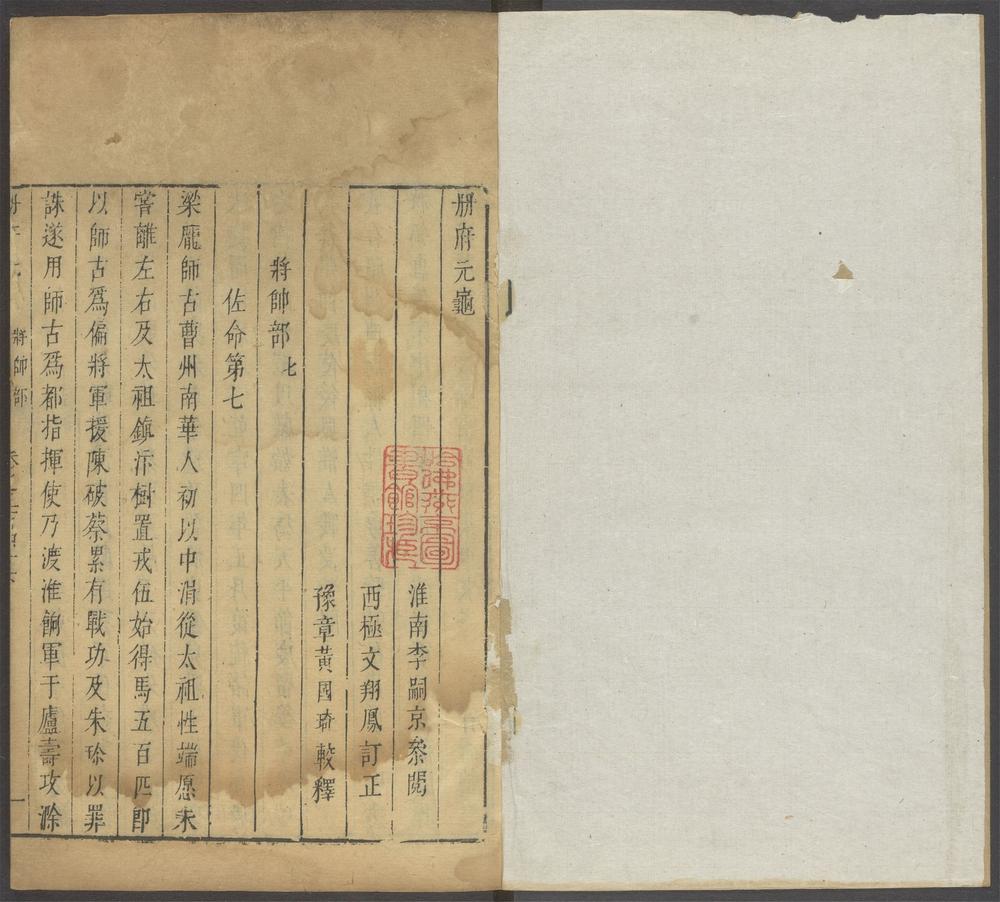 冊府元龜
淮南李嗣京叅閱
西極文翔鳳訂正
豫章黃國琦較釋
將帥部 七
佐命第七
梁龐師古曹州南華人初以中涓從太祖性端愿未
嘗離左右及太祖鎮汴樹置戎伍始得馬五百匹即
以師古爲偏將軍援陳破蔡累有戰功及朱珍以罪
誅遂用師古爲都指揮使乃渡淮餉軍于廬壽攻滁
將帥部
一
哈佛燕京圖
書館珍藏